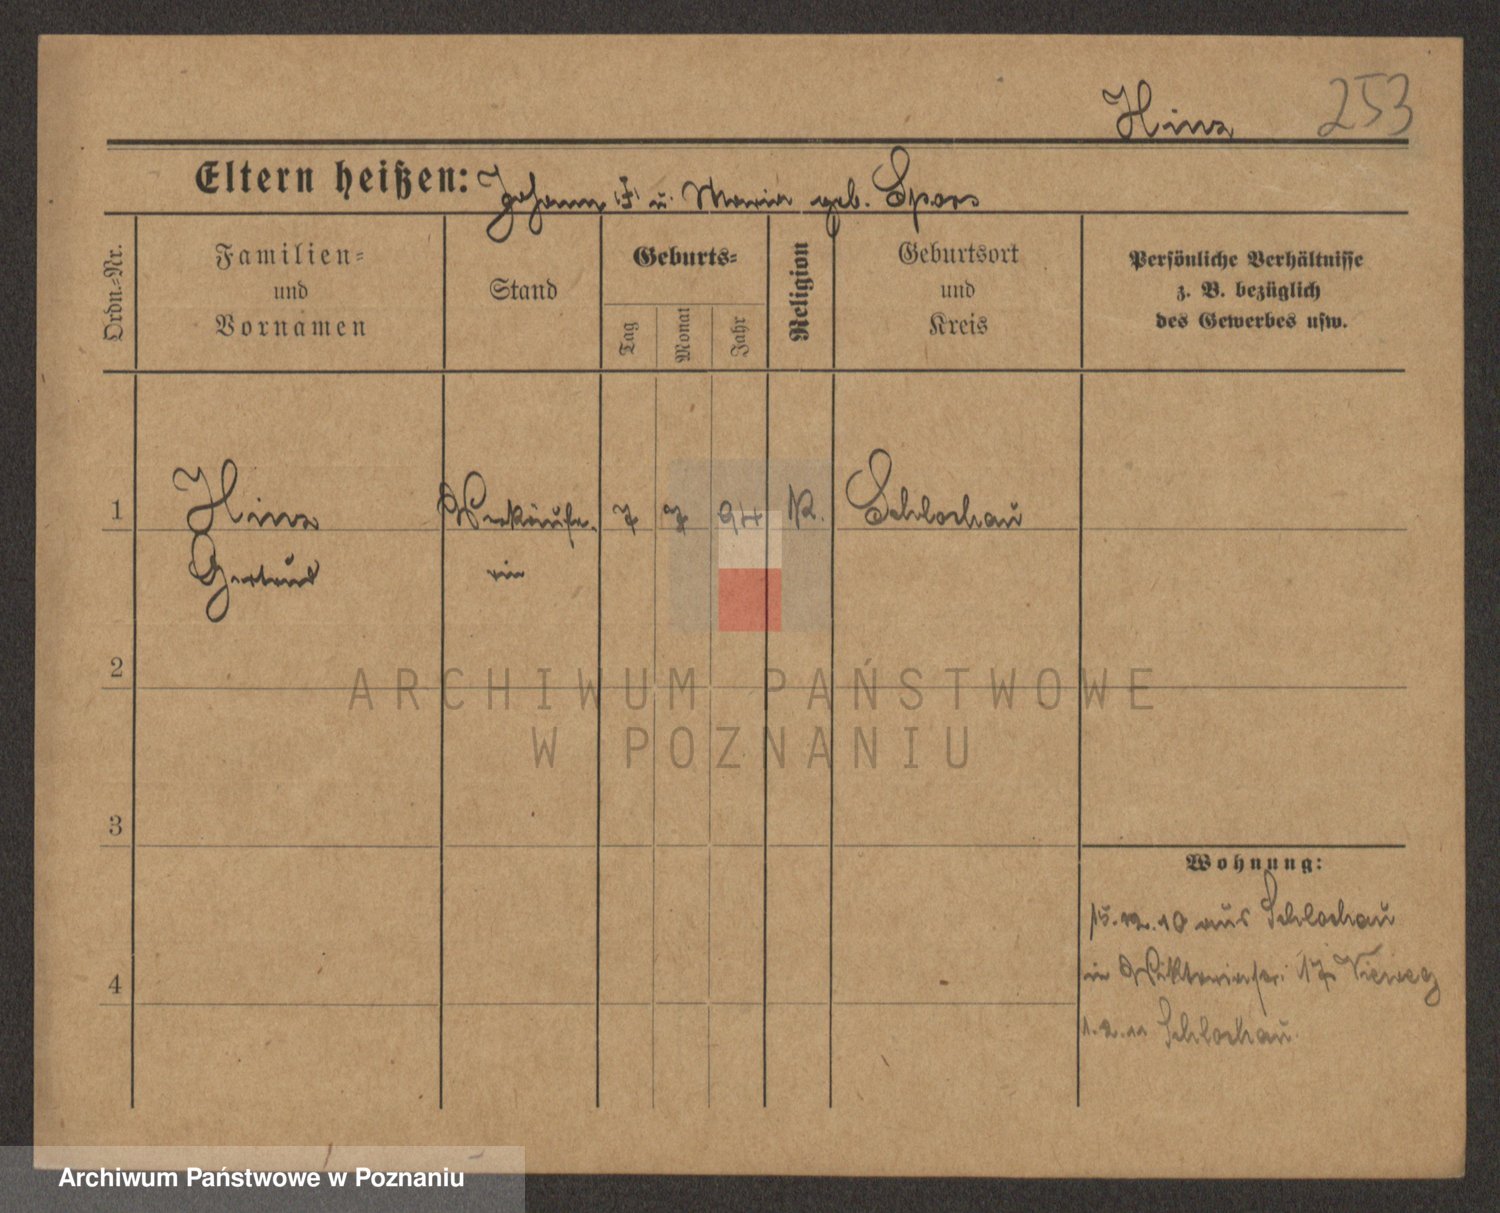 Hinz 253
Eltern heißen: Johann † u. Maria geb. Spors
Ordn.-Nr.
Familien-
und
Vornamen
Stand
Geburts-
Tag
Monat
Jahr
Religion
Geburtsort
und
Kreis
Persönliche Verhältnisse
z. B. bezüglich
des Gewerbes usw.
1 Hinz Verkäufe- 7 7 94 K. Schlochau
Gertrud rin
2
ARCHIWUM PAŃSTWOWE
W POZNANIU
3
Wohnung:
15.12.10 aus Schlochau
in Viktoriastr. 17 Vieweg
4
1.2.11 Schlochau.
Archiwum Państwowe w Poznaniu